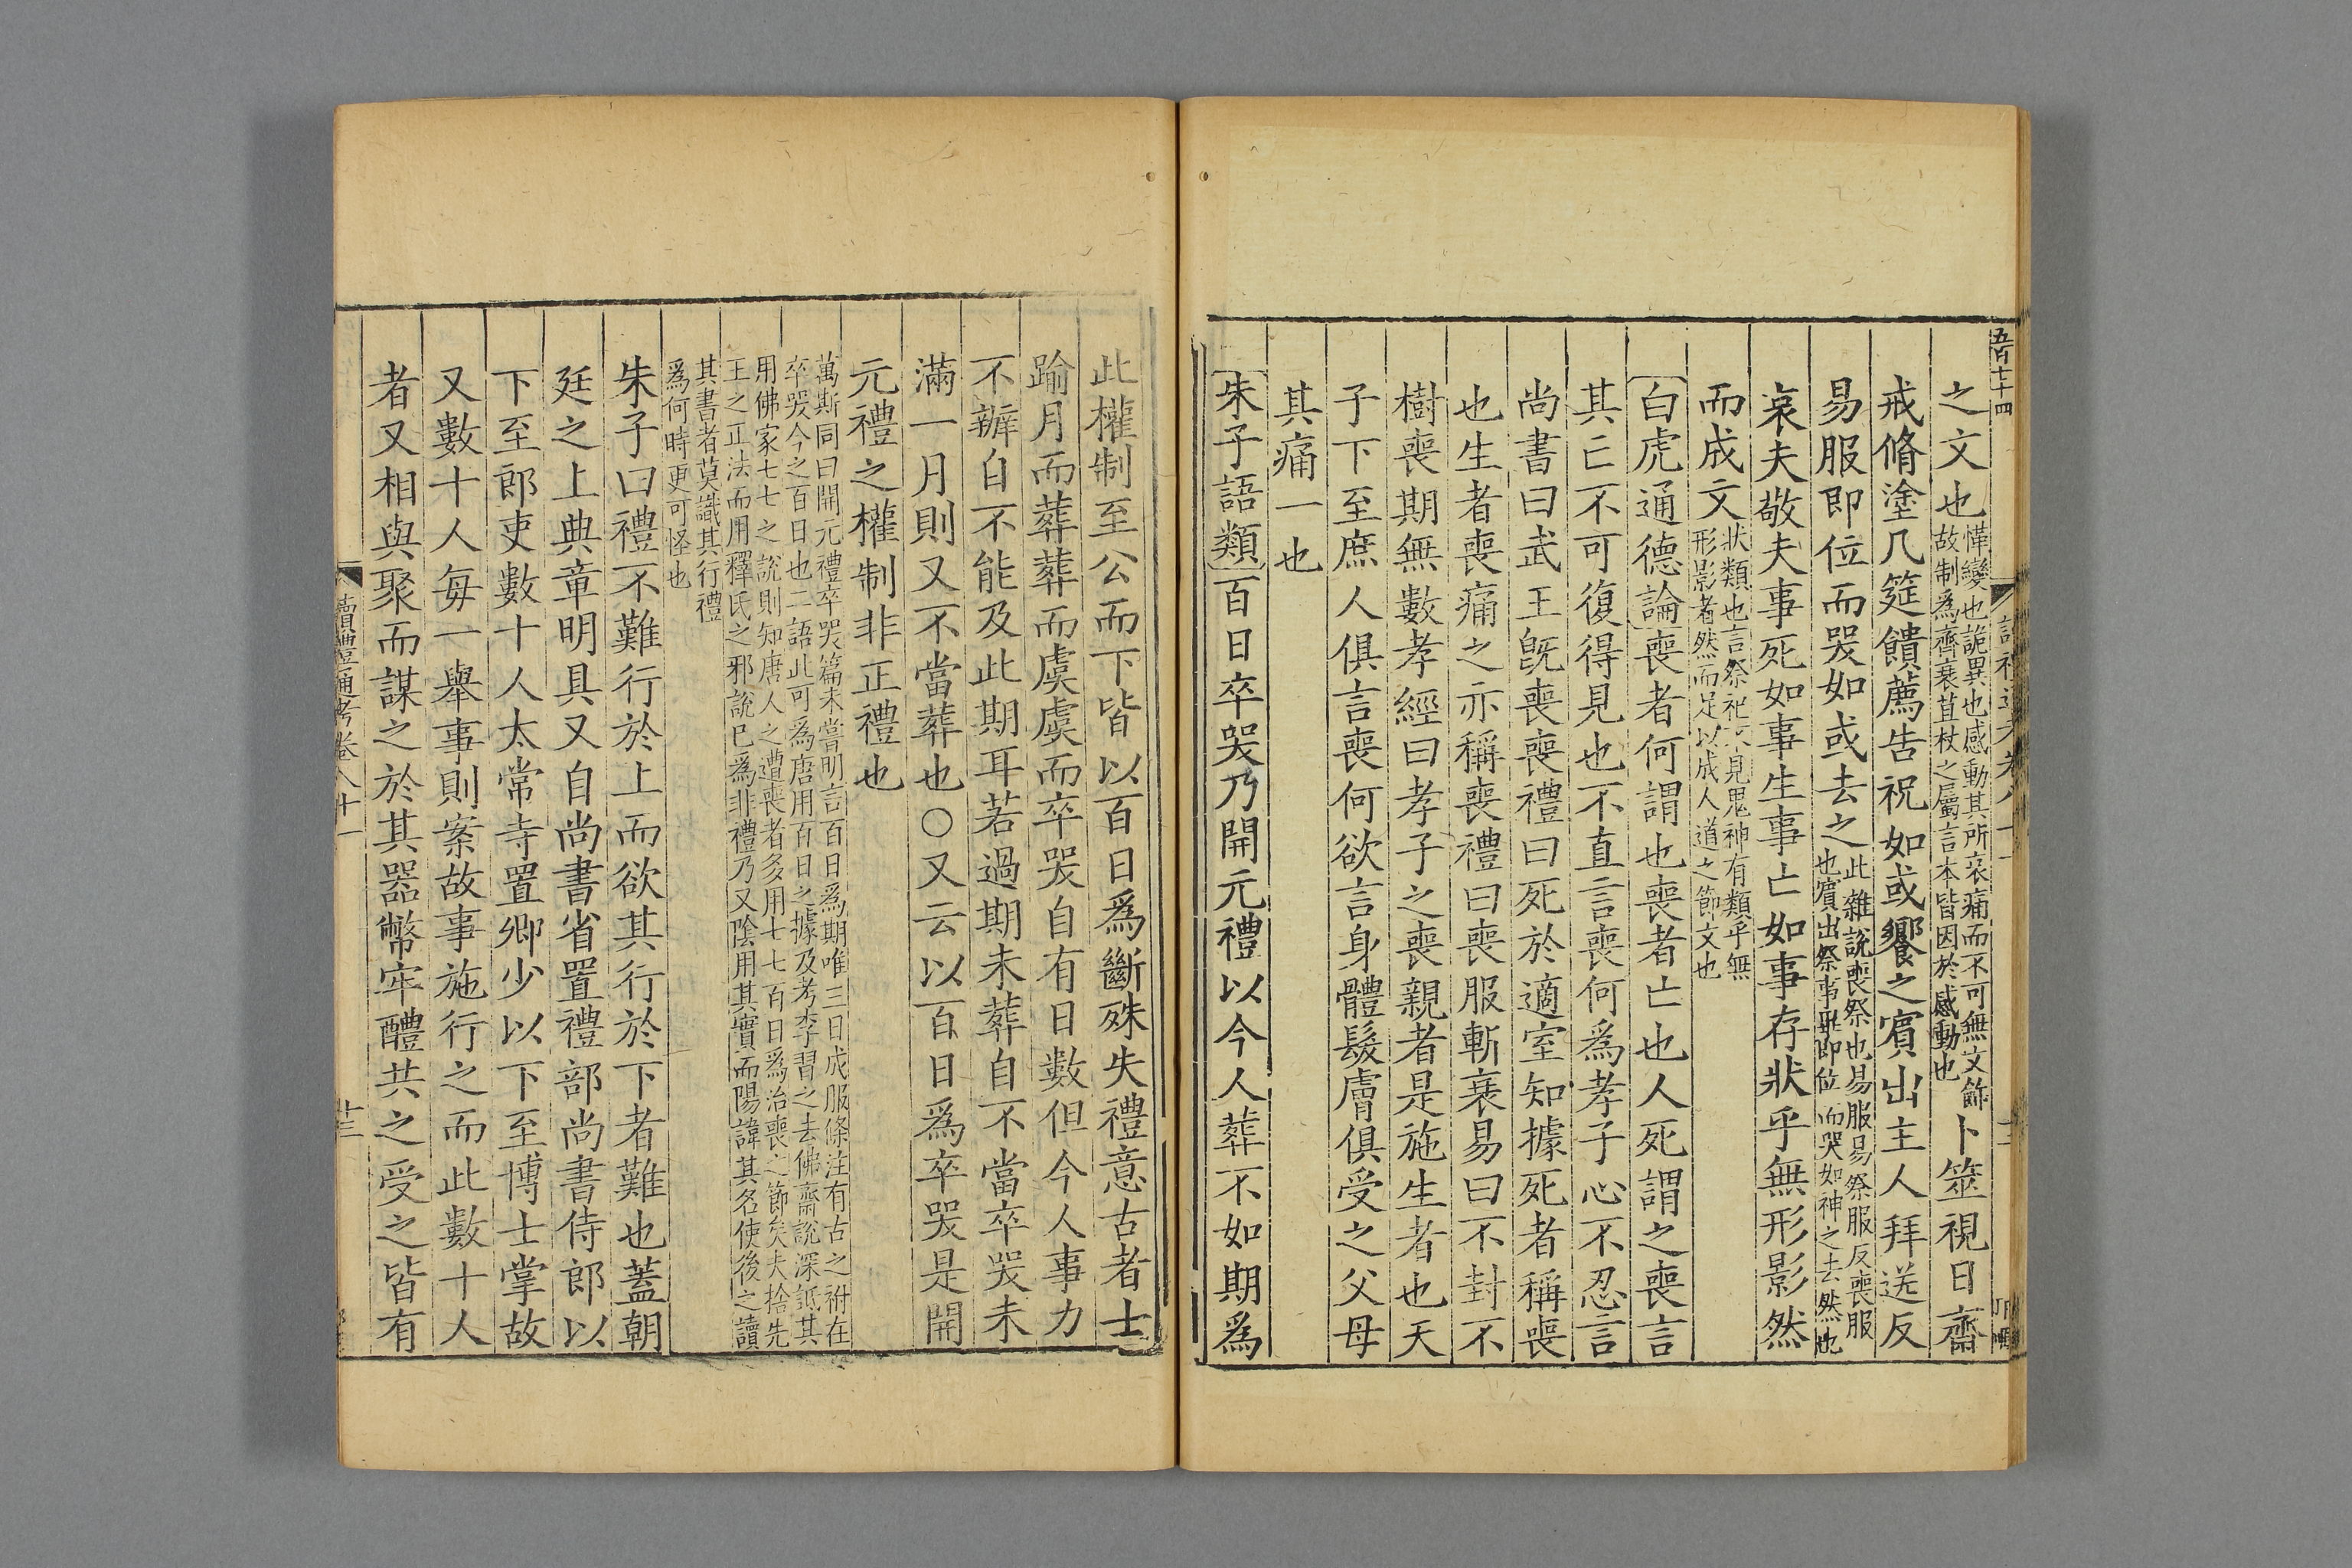 五百七十四
之文也憚變也詭異也感動其所哀痛而不可無文飾
故制為齊衰苴杖之屬言本皆因於感動也卜筮視日齋
戒脩塗几筵饋薦告祝如或饗之賓出主人拜送反
易服即位而哭如或去之此雜說喪祭也易服易祭服反喪服
也賓出祭事畢即位而哭如神之去然也
哀夫敬夫事死如事生事亡如事存狀乎無形影然
而成文狀類也言祭祀不見鬼神有類乎無
形影者然而足以成人道之節文也
白虎通德論喪者何謂也喪者亡也人死謂之喪言
其亡不可復得見也不直言喪何為孝子心不忍言
尚書曰武王旣喪喪禮曰死於適室知據死者稱喪
也生者喪痛之亦稱喪禮曰喪服斬衰易曰不封不
樹喪期無數孝經曰孝子之喪親者是施生者也天
子下至庶人俱言喪何欲言身體髮膚俱受之父母
其痛一也
朱子語類百日卒哭乃開元禮以今人葬不如期為
此權制至公而下皆以百日爲斷殊失禮意古者士
踰月而葬葬而虞虞而卒哭自有日數但今人事力
不辦自不能及此期耳若過期未葬自不當卒哭未
滿一月則又不當葬也○又云以百日爲卒哭是開
元禮之權制非正禮也
萬斯同曰開元禮卒哭篇未嘗明言百日爲期唯三日成服條注有古之祔在
卒哭今之百日也二語此可爲唐用百日之據及考李習之去佛齋說深詆其
用佛家七七之說則知唐人之遭喪者多用七七百日爲治喪之節矣夫捨先
王之正法而用釋氏之邪說已爲非禮乃又陰用其實而陽諱其名使後之讀
其書者莫識其行禮
爲何時更可怪也
朱子曰禮不難行於上而欲其行於下者難也蓋朝
廷之上典章明具又自尚書省置禮部尚書侍郎以
下至郎吏數十人太常寺置卿少以下至博士掌故
又數十人每一舉事則案故事施行之而此數十人
者又相與聚而謀之於其器幣牢醴共之受之皆有
讀禮通考卷八十一
十三